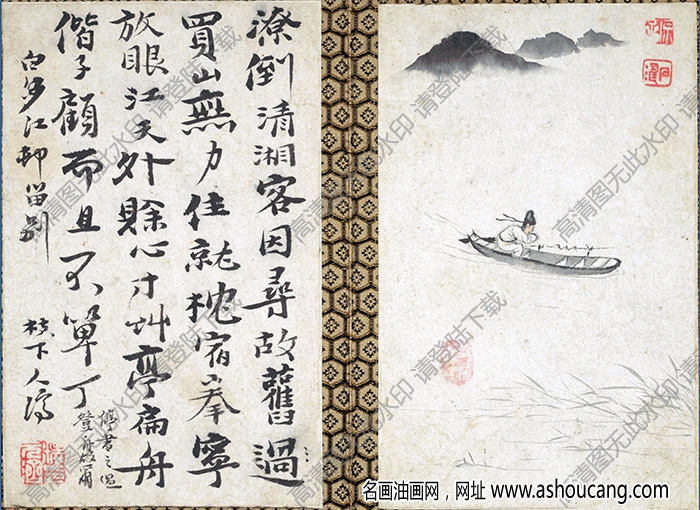 潦倒清湘客因尋故舊過
買山無力住就枕宿拳寧
放眼江天外賒心寸艸亭扁舟
偕子顧而且不單丁
登舟故爾
白多江邨留別
枝下人濟
高清图无此水印 请登陆下载
名画油画网，网址 www.ashoucang.com